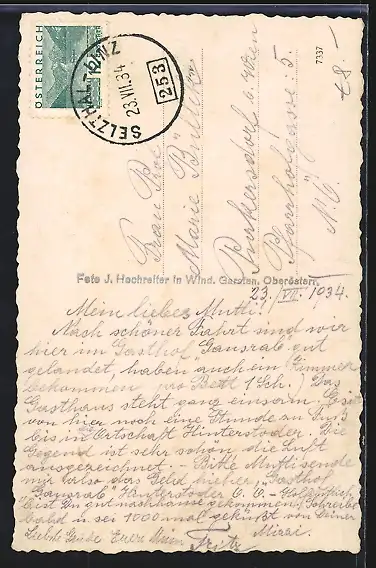 ÖSTERREICH
SELZTHAL-LINZ
23.VII.34
253
7337
Frau
Marie
Purkersdorf b. Wien
Pfarrhofgasse: 5.
N.Ö.
Foto J. Hochreiter in Wind. Garsten, Oberösterr.
23. /VII. 1934.
Mein liebes Mutti!
Nach schöner Fahrt sind wir
hier im Gasthof „Gansrab" gut
gelandet, haben auch ein Zimmer
bekommen pro Bett 1 Sch.) Das
Gasthaus steht ganz einsam. Es ist
von hier noch eine Stunde zu Fuß
bis in Ortschaft Hinterstoder. Die
Gegend ist sehr schön die Luft
ausgezeichnet. Bitte Mutti sende
mir also das Geld hieher: „Gasthof
Gansrab" Hinterstoder O.Ö.
Bist Du gut nachhause gekommen? Schreibe
bald u. sei 1000 mal geküßt von Deiner
Mizzi.
Fritz